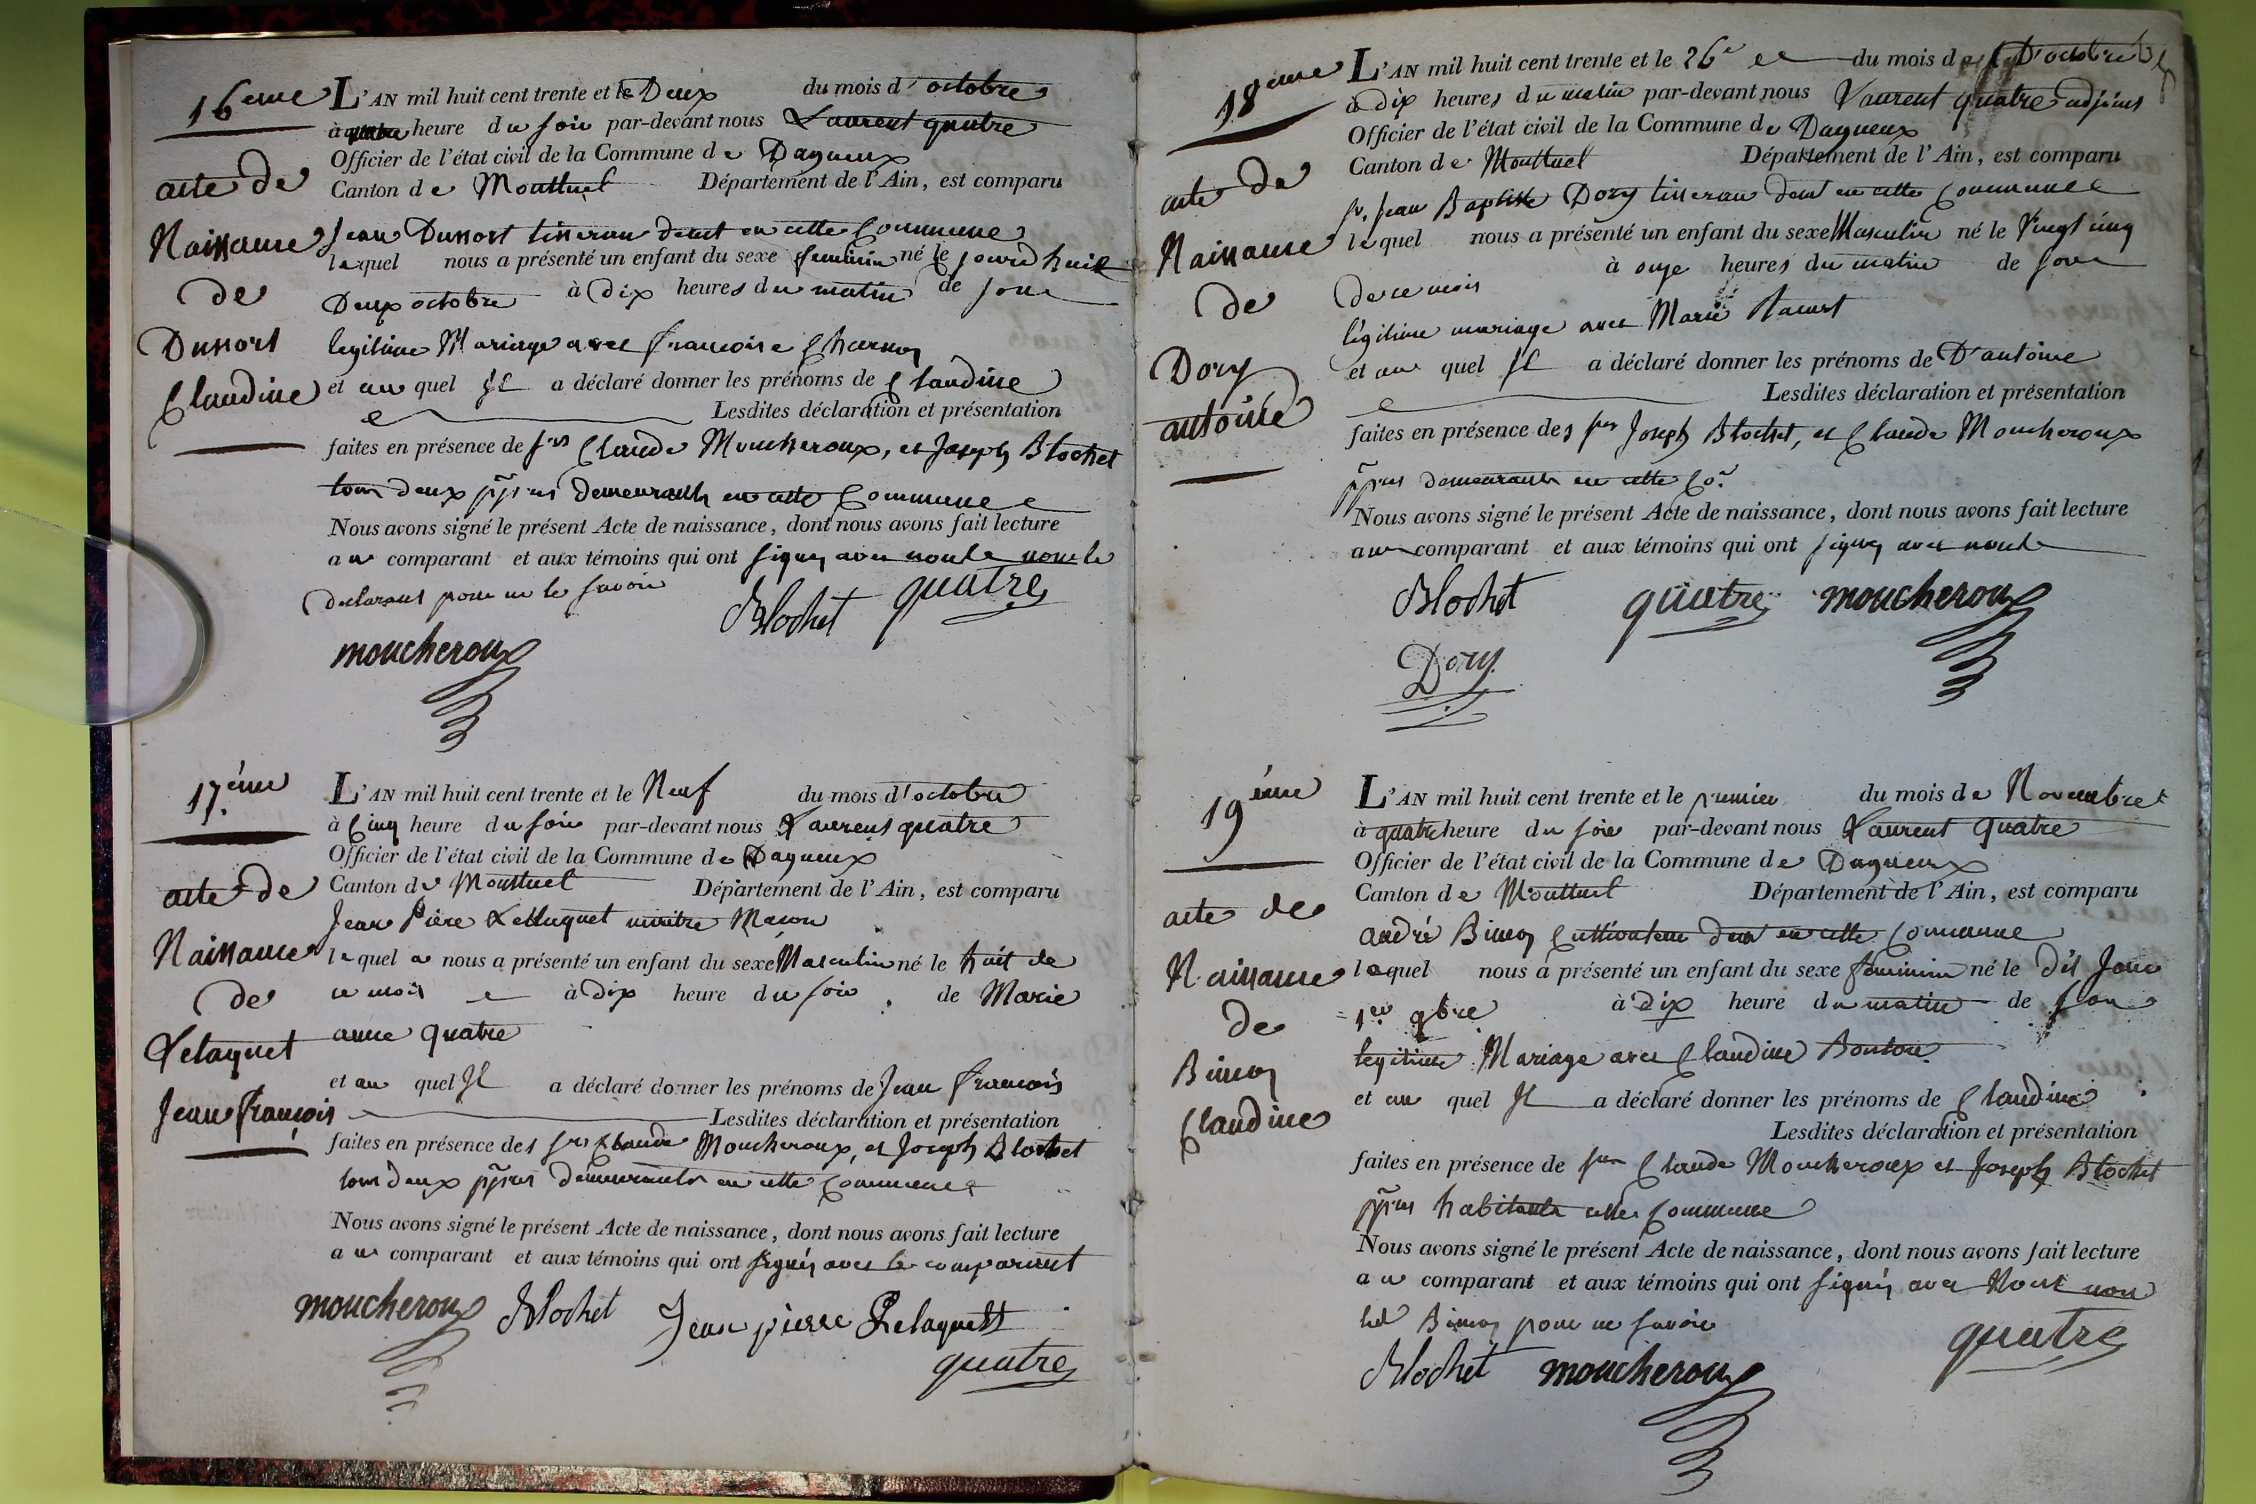 16eme
acte de
Naissance
de
Dussort
Claudine
L'AN mil huit cent trente et le Deux du mois d'octobre
à heure du soir par-devant nous Laurent quatre
Officier de l'état civil de la Commune de Dagneux
Canton de Montluel Département de l'Ain, est comparu
Jean Dussort tisseran demt en cette Commune
lequel nous a présenté un enfant du sexe feminin né le jourd'huit
Deux octobre à Dix heures du matin de son
legitime Mariage avec francoise
et au quel il a déclaré donner les prénoms de Claudine
Lesdites déclaration et présentation
faites en présence de srs Claude Moucheroux, et Joseph Blochet
tous deux pprres Demeurants en cette Commune
Nous avons signé le présent Acte de naissance, dont nous avons fait lecture
au comparant et aux témoins qui ont signes avec nous non le
declarant pour ne le savoir
Blochet quatre
moucheroux
17éme
acte de
Naissance
de
Lelaquet
Jean françois
L'AN mil huit cent trente et le Neuf du mois d'octobre
à Cinq heure du soir par-devant nous Laurent quatre
Officier de l'état civil de la Commune de Dagneux
Canton de Montluel Département de l'Ain, est comparu
Jean Piere Lelaquet maitre Macon
lequel a nous a présenté un enfant du sexe Masculin né le huit de
ce mois à Dix heure du soir de Marie
anne quatre
et au quel Il a déclaré donner les prénoms de Jean francois
Lesdites déclaration et présentation
faites en présence des srs Claude Moucheroux, et Joseph Blochet
tous deux pprres demeurants en cette Commune
Nous avons signé le présent Acte de naissance, dont nous avons fait lecture
au comparant et aux témoins qui ont signés avec le comparant
moucheroux Blochet Jean pierre Lelaquett
quatre
18eme
acte de
Naissance
de
Dory
antoine
L'AN mil huit cent trente et le 26e du mois de D'octobre
à dix heures du matin par-devant nous Laurent quatre adjoint
Officier de l'état civil de la Commune de Dagneux
Canton de Montluel Département de l'Ain, est comparu
sr. Jean Baptiste Dory tisseran demt en cette Commune
lequel nous a présenté un enfant du sexe Masculin né le Vingt cinq
de ce mois à onze heures du matin de son
légitime mariage avec Marie
et au quel Il a déclaré donner les prénoms de D'antoine
Lesdites déclaration et présentation
faites en présence des srs Joseph Blochet, et Claude Moucheroux
pprres demeurants en cette Co.
Nous avons signé le présent Acte de naissance, dont nous avons fait lecture
au comparant et aux témoins qui ont signes avec nous
Blochet quatre moucheroux
Dory
19éme
acte de
Naissance
de
Claudine
L'AN mil huit cent trente et le premier du mois de Novembre
à quatre heure du soir par-devant nous Laurent quatre
Officier de l'état civil de la Commune de Dagneux
Canton de Montluel Département de l'Ain, est comparu
andré Cultivateur demt en cette Commune
lequel nous a présenté un enfant du sexe féminin né le dit Jour
1er 9bre à dix heure du matin de son
legitime Mariage avec Claudine
et au quel Il a déclaré donner les prénoms de Claudine
Lesdites déclaration et présentation
faites en présence de srs Claude Moucheroux et Joseph Blochet
pprres habitants cette Commune
Nous avons signé le présent Acte de naissance, dont nous avons fait lecture
au comparant et aux témoins qui ont signés avec Nous non
led pour ne savoir
quatre
Blochet moucheroux